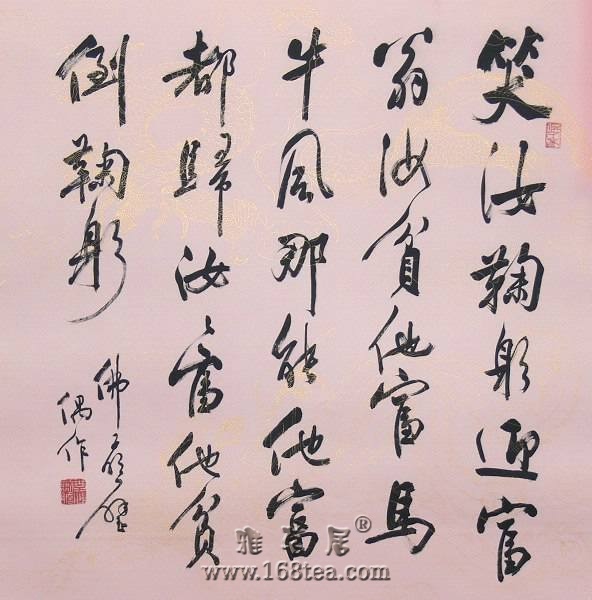 笑汝鞠躬迎富
翁汝貧他富馬
牛風那能他富
都歸汝汝富他貧
倒鞠躬
佛居壁
偶作
雅茗居®
www.168tea.com